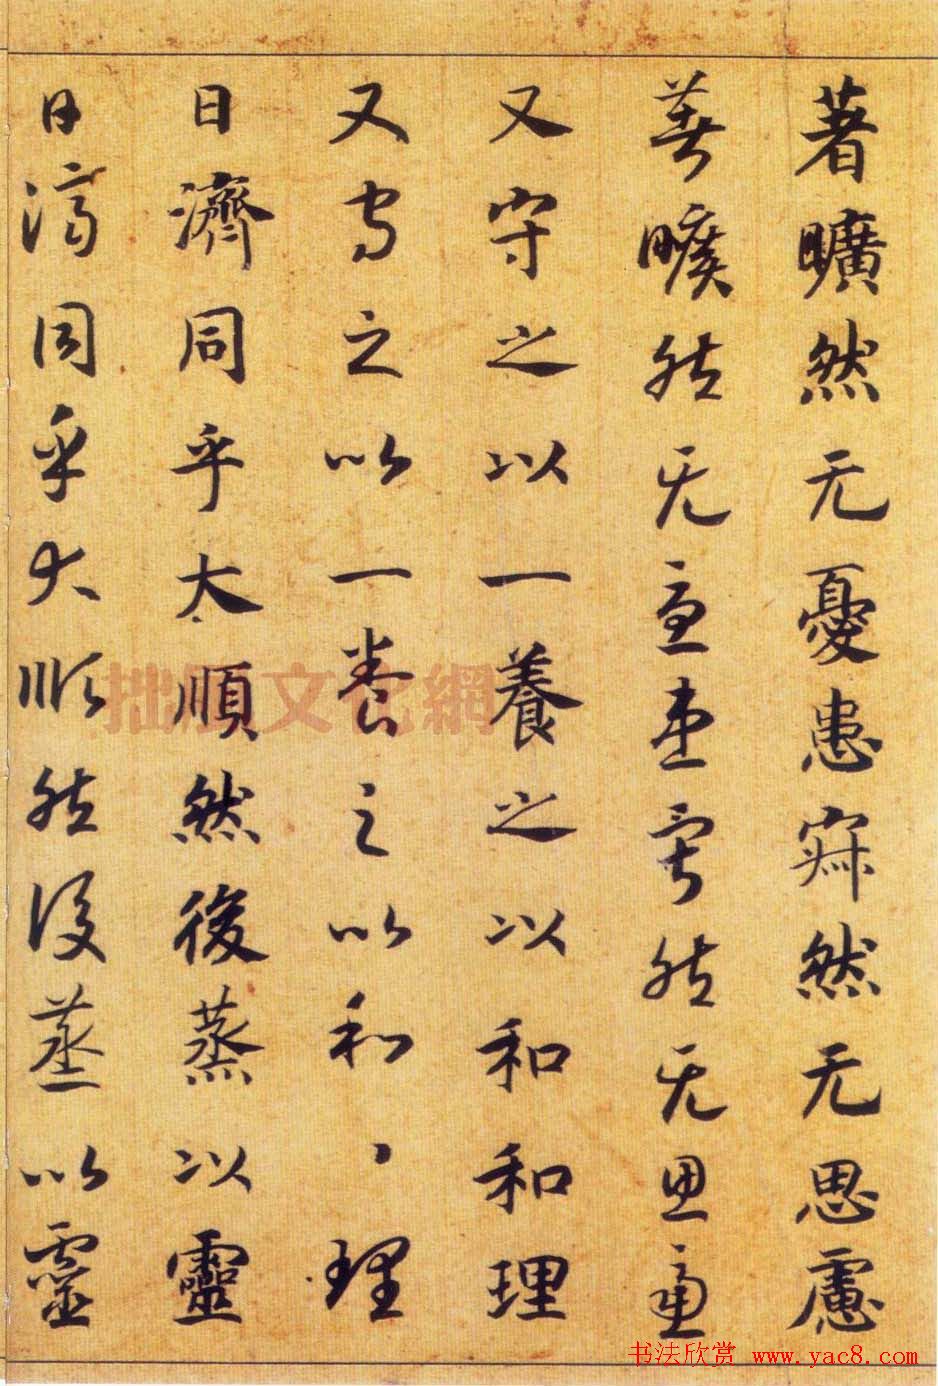 著曠然无憂患寂然无思慮
著曠然无憂患寂然无思慮
又守之以一養之以和和理
又守之以一養之以和、理
日濟同乎大順然後蒸以靈
日濟同乎大順然後蒸以靈
拙風文化網
书法欣赏 www.yac8.com